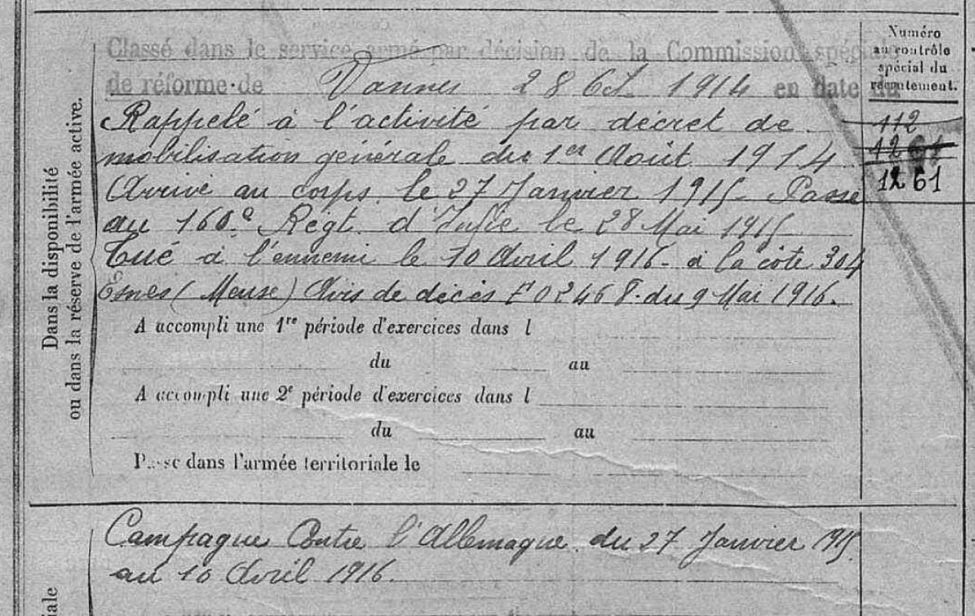 Dans la disponibilité
ou dans la réserve de l'armée active.
Classé dans le service armé par décision de la Commission spéciale
de réforme de Vannes 28 Oct. 1914 en date du
Rappelé à l'activité par décret de
mobilisation générale du 1er Août 1914
Arrivé au corps le 27 Janvier 1915. Passé
au 160e Régt. d'Infie le 28 Mai 1915
Tué à l'ennemi le 10 Avril 1916 - à la côte 304
Esnes (Meuse) Avis de décès du 9 Mai 1916.
A accompli une 1re période d'exercices dans l
du au
A accompli une 2e période d'exercices dans l
du au
Passé dans l'armée territoriale le
Numéro
au contrôle
spécial du
recrutement.
112
1261
1261
Campagne Contre l'Allemagne du 27 Janvier 1915
au 10 Avril 1916.
iale